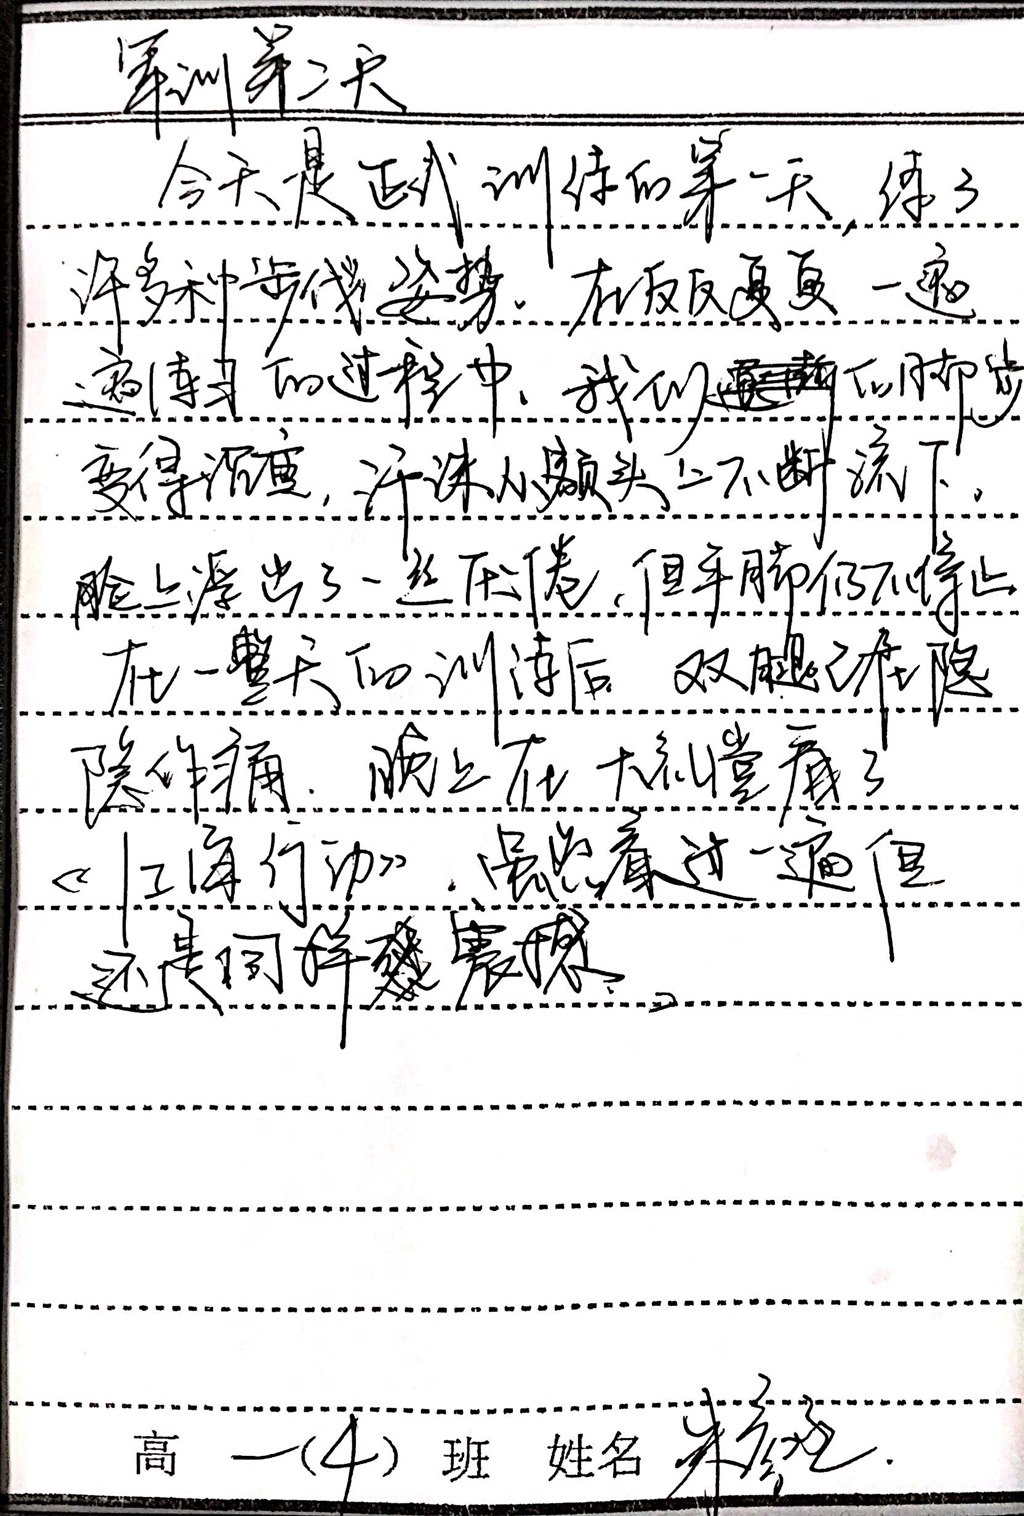 军训第二天
今天是正式训练的第一天,练了
许多种步伐姿势.在反反复复一遍
遍练习的过程中,我们的脚步
变得沉重,汗珠从额头上不断流下,
脸上浮出了一丝厌倦,但手脚仍不停止
在一整天的训练后 双腿已在隐
隐作痛.晚上在大礼堂看了
《红海行动》.虽然看过一遍但
还是同样震撼。
高一(4)班 姓名 朱